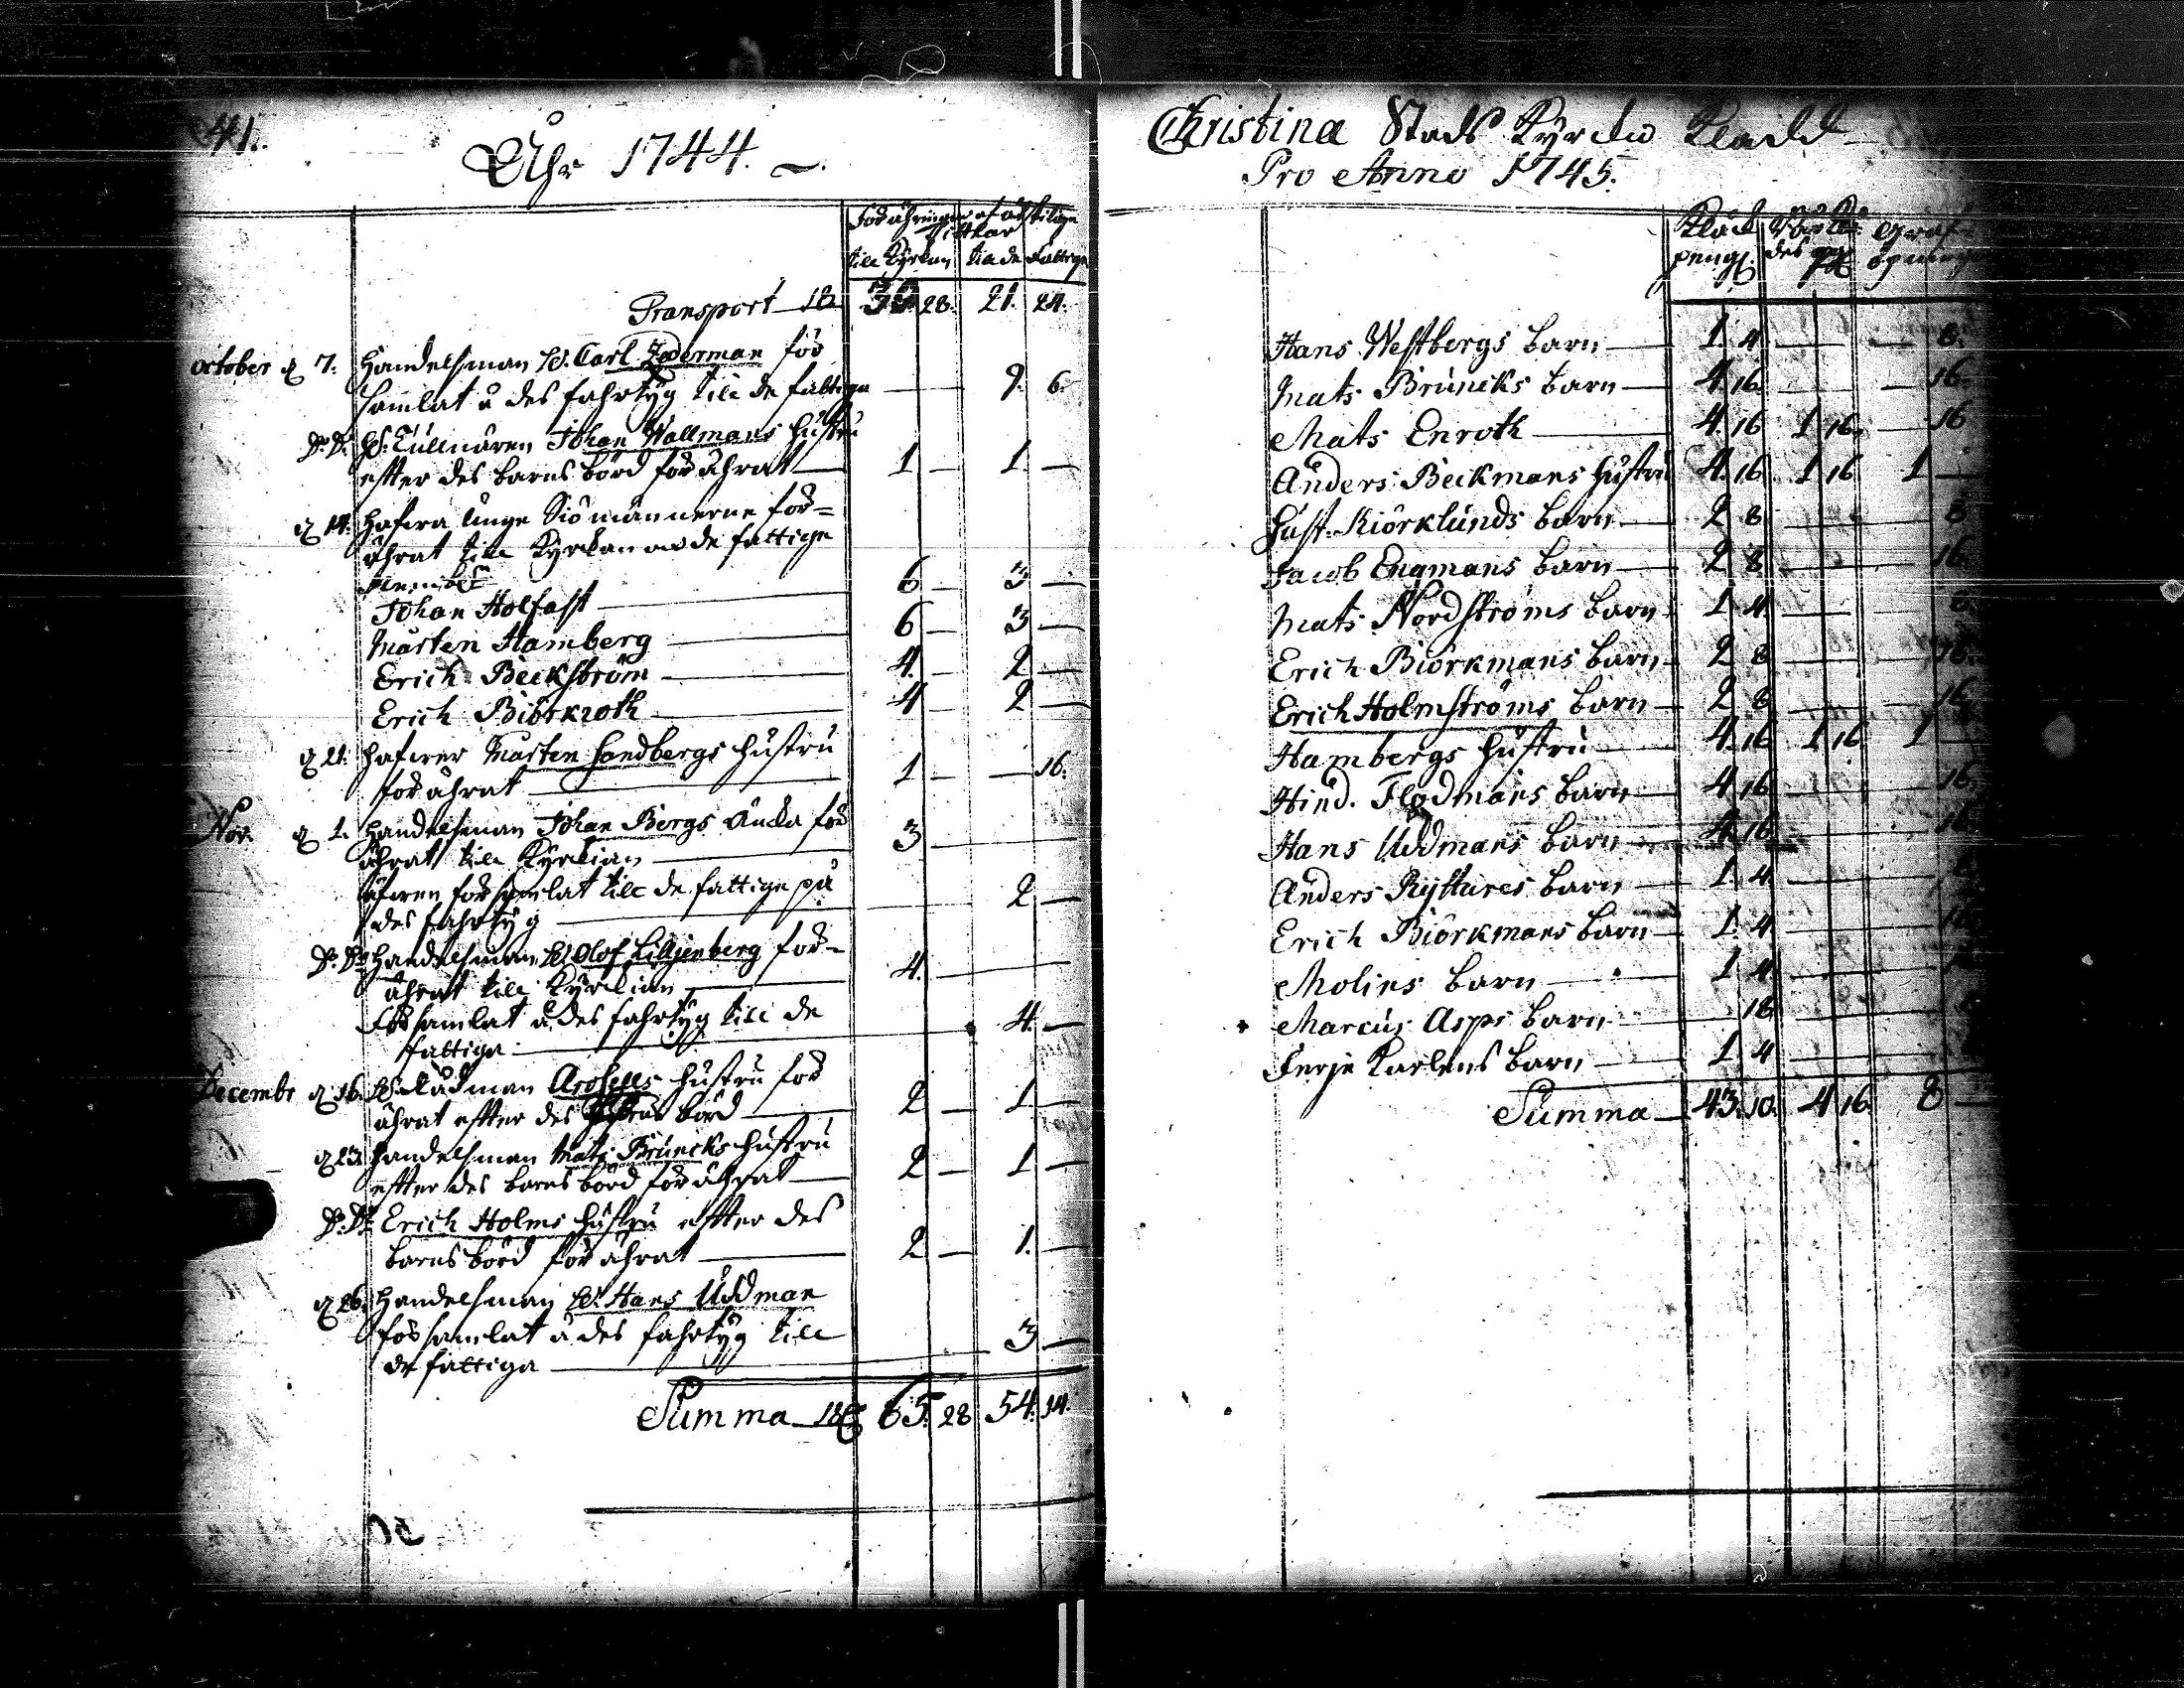 41.
Åhr 1744.
Förähringar af åtskillige
till Kyrkan till de Fattige
Transport 36. 28. 21. 24.
October d 7. Handelsman H. Carl Zederman för
samlat å des fahrtyg till de fattiga 9. 6.
Do Do H. Tullnären Johan Wallmans hustru
efter des barns börd förährat 1 — 1 —
d 14. Hafwa unge Siömännerne för=
ährat till Kyrkan och de fattige
Johan Holfast 6 — 3 —
Mårten Hamberg 6 — 3 —
Erich Beckström 4. — 2 —
Erich Biörkroth 4 — 2 —
d 21. hafwer Mårten Sandbergs hustru
förährat 1 — — 16.
Nov. d 1. Handelsman Johan Bergs Äncka för
ährat till Kyrkian 3 —
äfwen församlat till de fattige på
des fahrtyg 2 —
Do Do Handelsman H Olof Lilljenberg för-
ährat till Kyrkian 4. —
Församlat å des fahrtyg till de
fattiga 4. —
Decembr d 16. H. Rådman hustru för
ährat efter des börd 2 — 1 —
d 23. Handelsman Mats Bruncks hustru
efter des barns börd förährat 2 — 1 —
Do Do Erich Holms hustru efter des
barns börd förährat 2 — 1. —
d 26. Handelsman H. Hans Uddman
församlat å des fahrtyg till
de fattiga 3 —
Summa 65. 28 54. 14.
Christinæ Stads Kyrckio
Pro Anno 1745.
Klåck peng. des Graf öpning
Hans Westbergs barn 1 4 — — 8.
Mats Bruncks barn 4 16. — — 16.
Mats Enroth 4. 16 1 16. — 16
Anders Beckmans hustru 4. 16. 1 16 1 —
Hust. Kiörklunds barn 2 8 — 8
Jacob Engmans barn 2 8 — 16.
Mats Nordströms barn 1 4. — 8.
Erich Biörkmans barn 2 8 — 16.
Erich Holmströms barn 2 8 — 16.
Hambergs hustru 4. 16 1 16 1 —
Hind. Flodmans barn 4 16 — 16.
Hans Uddmans barn 4. 16 — 16.
Anders Ryttares barn 1. 4. —
Erich Biörkmans barn 1. 4. —
Molins barn 1 4 —
Marcus Asps barn 18
Karlens barn 1 4
Summa 43. 10. 4 16. 8 —